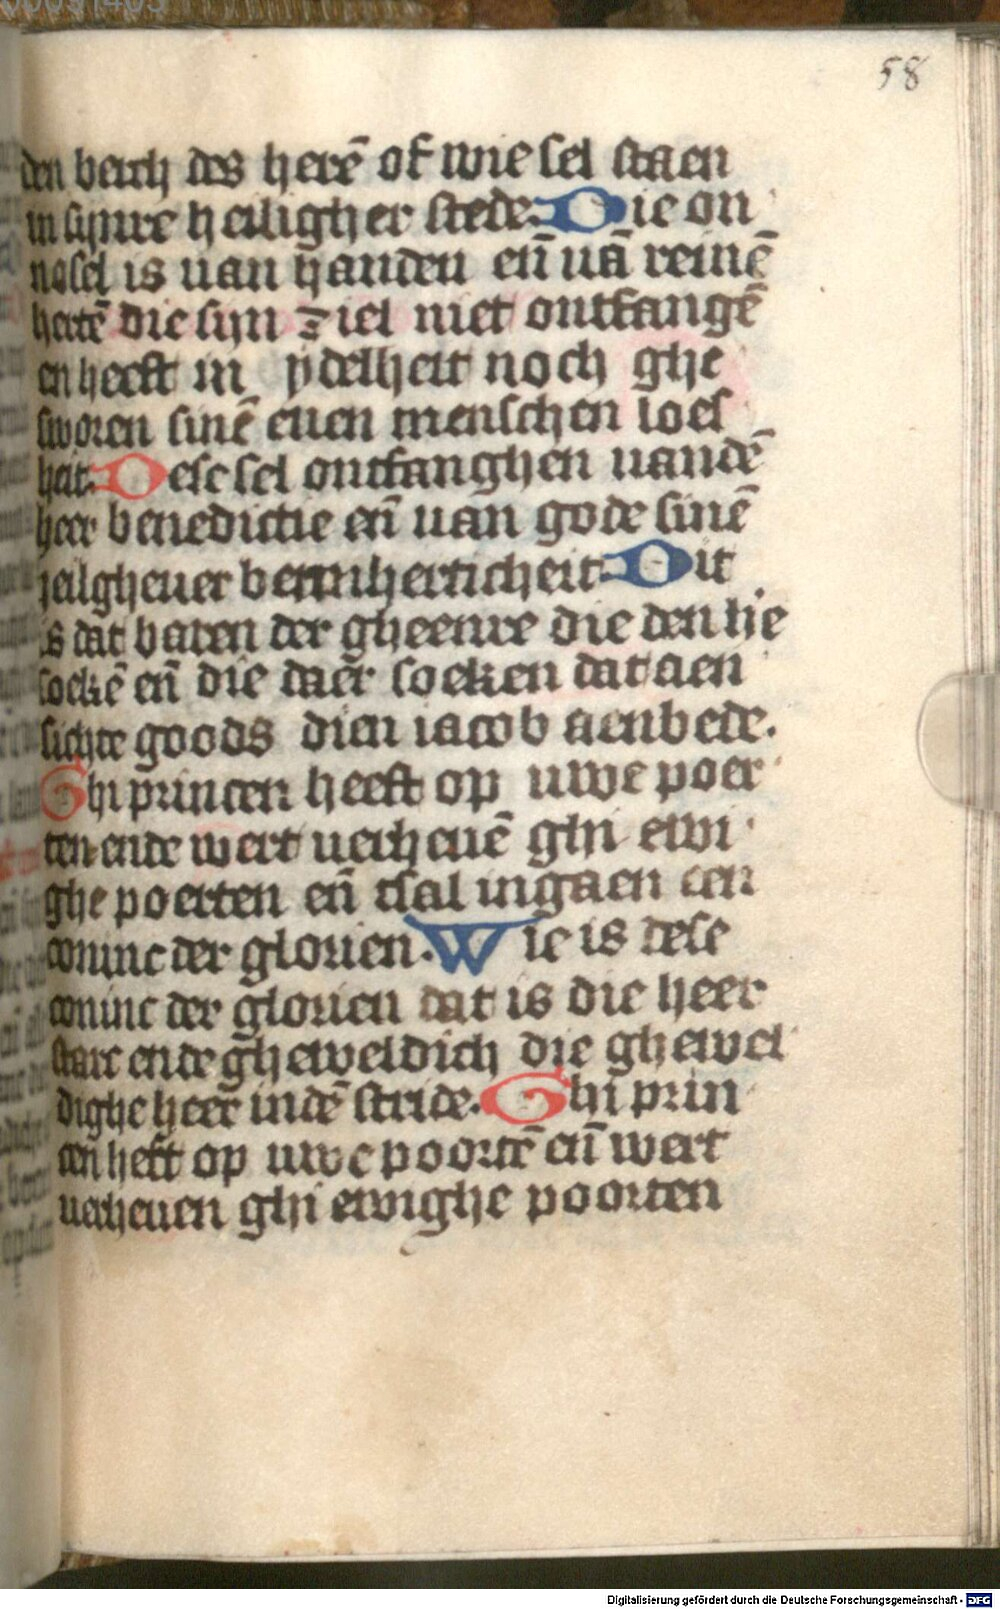 58
den berch des herē of wie sel staen
in sijnre heiligher stede. Die on
nosel is van handen eñ uā reinē
hertē die sijn ziel niet ontfangē
en heeft in ydelheit noch ghe
sworen sinē euen menschen loes
heit. Dese sel ontfanghen vandē
heer benedictie eñ uan gode sinē
heilgheuer bermherticheit. Dit
is dat baren der gheenre die den he
soekē eñ die daer soeken dat aen
sichte goods dien iacob aenbede.
Ghi princen heeft op uwe poer
ten ende wert uerheuē ghi ewi
ghe poerten eñ tsal ingaen een
coninc der glorien. Wie is dese
coninc der glorien dat is die heer
starc ende gheweldich die ghewel
dighe heer indē stride. Ghi prin
cen heft op uwe poortē eñ wert
uerheuen ghi ewighe poorten
Digitalisierung gefördert durch die Deutsche Forschungsgemeinschaft - DFG